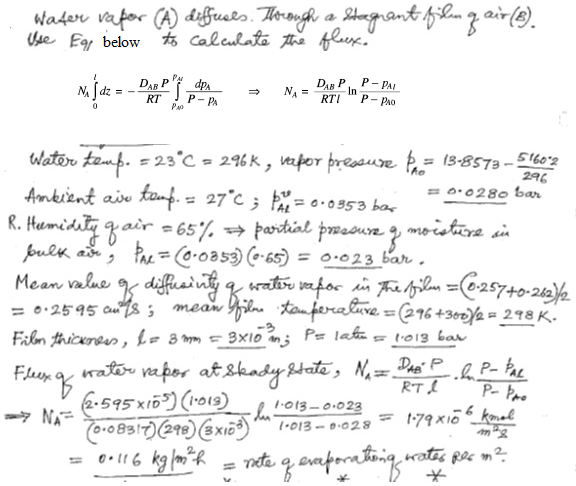 Water vapor (A) diffuses through a stagnant film of air (B).
Use Eq. below to calculate the flux.
N_A ∫_0^l dz = − (D_AB P / RT) ∫_{p_A0}^{p_Al} dp_A / (P − p_A) ⇒ N_A = (D_AB P / RTl) ln (P − p_Al) / (P − p_A0)
Water temp. = 23°C = 296K, vapor pressure p_Ao = 13.8573 − 5160.2/296
= 0.0280 bar
Ambient air temp. = 27°C; p^v_Al = 0.0353 bar
R. Humidity of air = 65% ⇒ partial pressure of moisture in
bulk air, p_Al = (0.0353)(0.65) = 0.023 bar.
Mean value of diffusivity of water vapor in the film = (0.257+0.262)/2
= 0.2595 cm²/s; mean film temperature = (296+300)/2 = 298 K.
Film thickness, l = 3 mm = 3×10⁻³ m; P = 1 atm = 1.013 bar
Flux of water vapor at steady state, N_A = (D_AB P / RTl) · ln (P − p_Al) / (P − p_Ao)
⇒ N_A = (2.595×10⁻⁵)(1.013) / (0.08317)(298)(3×10⁻³) ln (1.013 − 0.023) / (1.013 − 0.028) = 1.79×10⁻⁶ kmol / m²s
= 0.116 kg/m²h = rate of evaporation of water per m².